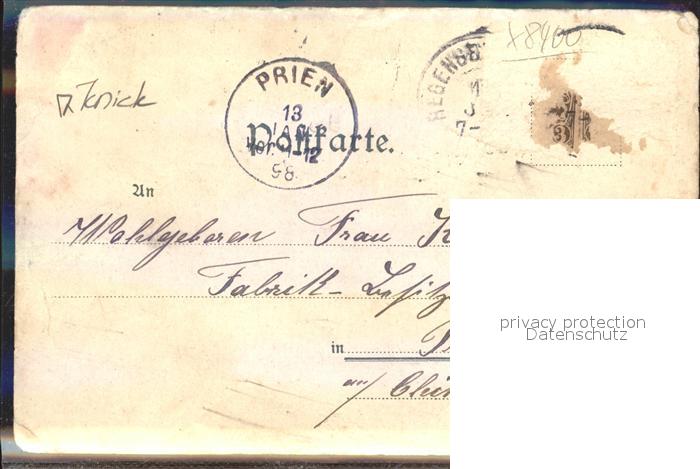 x8400
Knick
PRIEN
13
JAN.
Vor. 11-12
98.
REGENSB
7-
Postkarte.
An
Wohlgeboren Frau K
Fabrik-Besitz
in
am/ Chie
privacy protection
Datenschutz